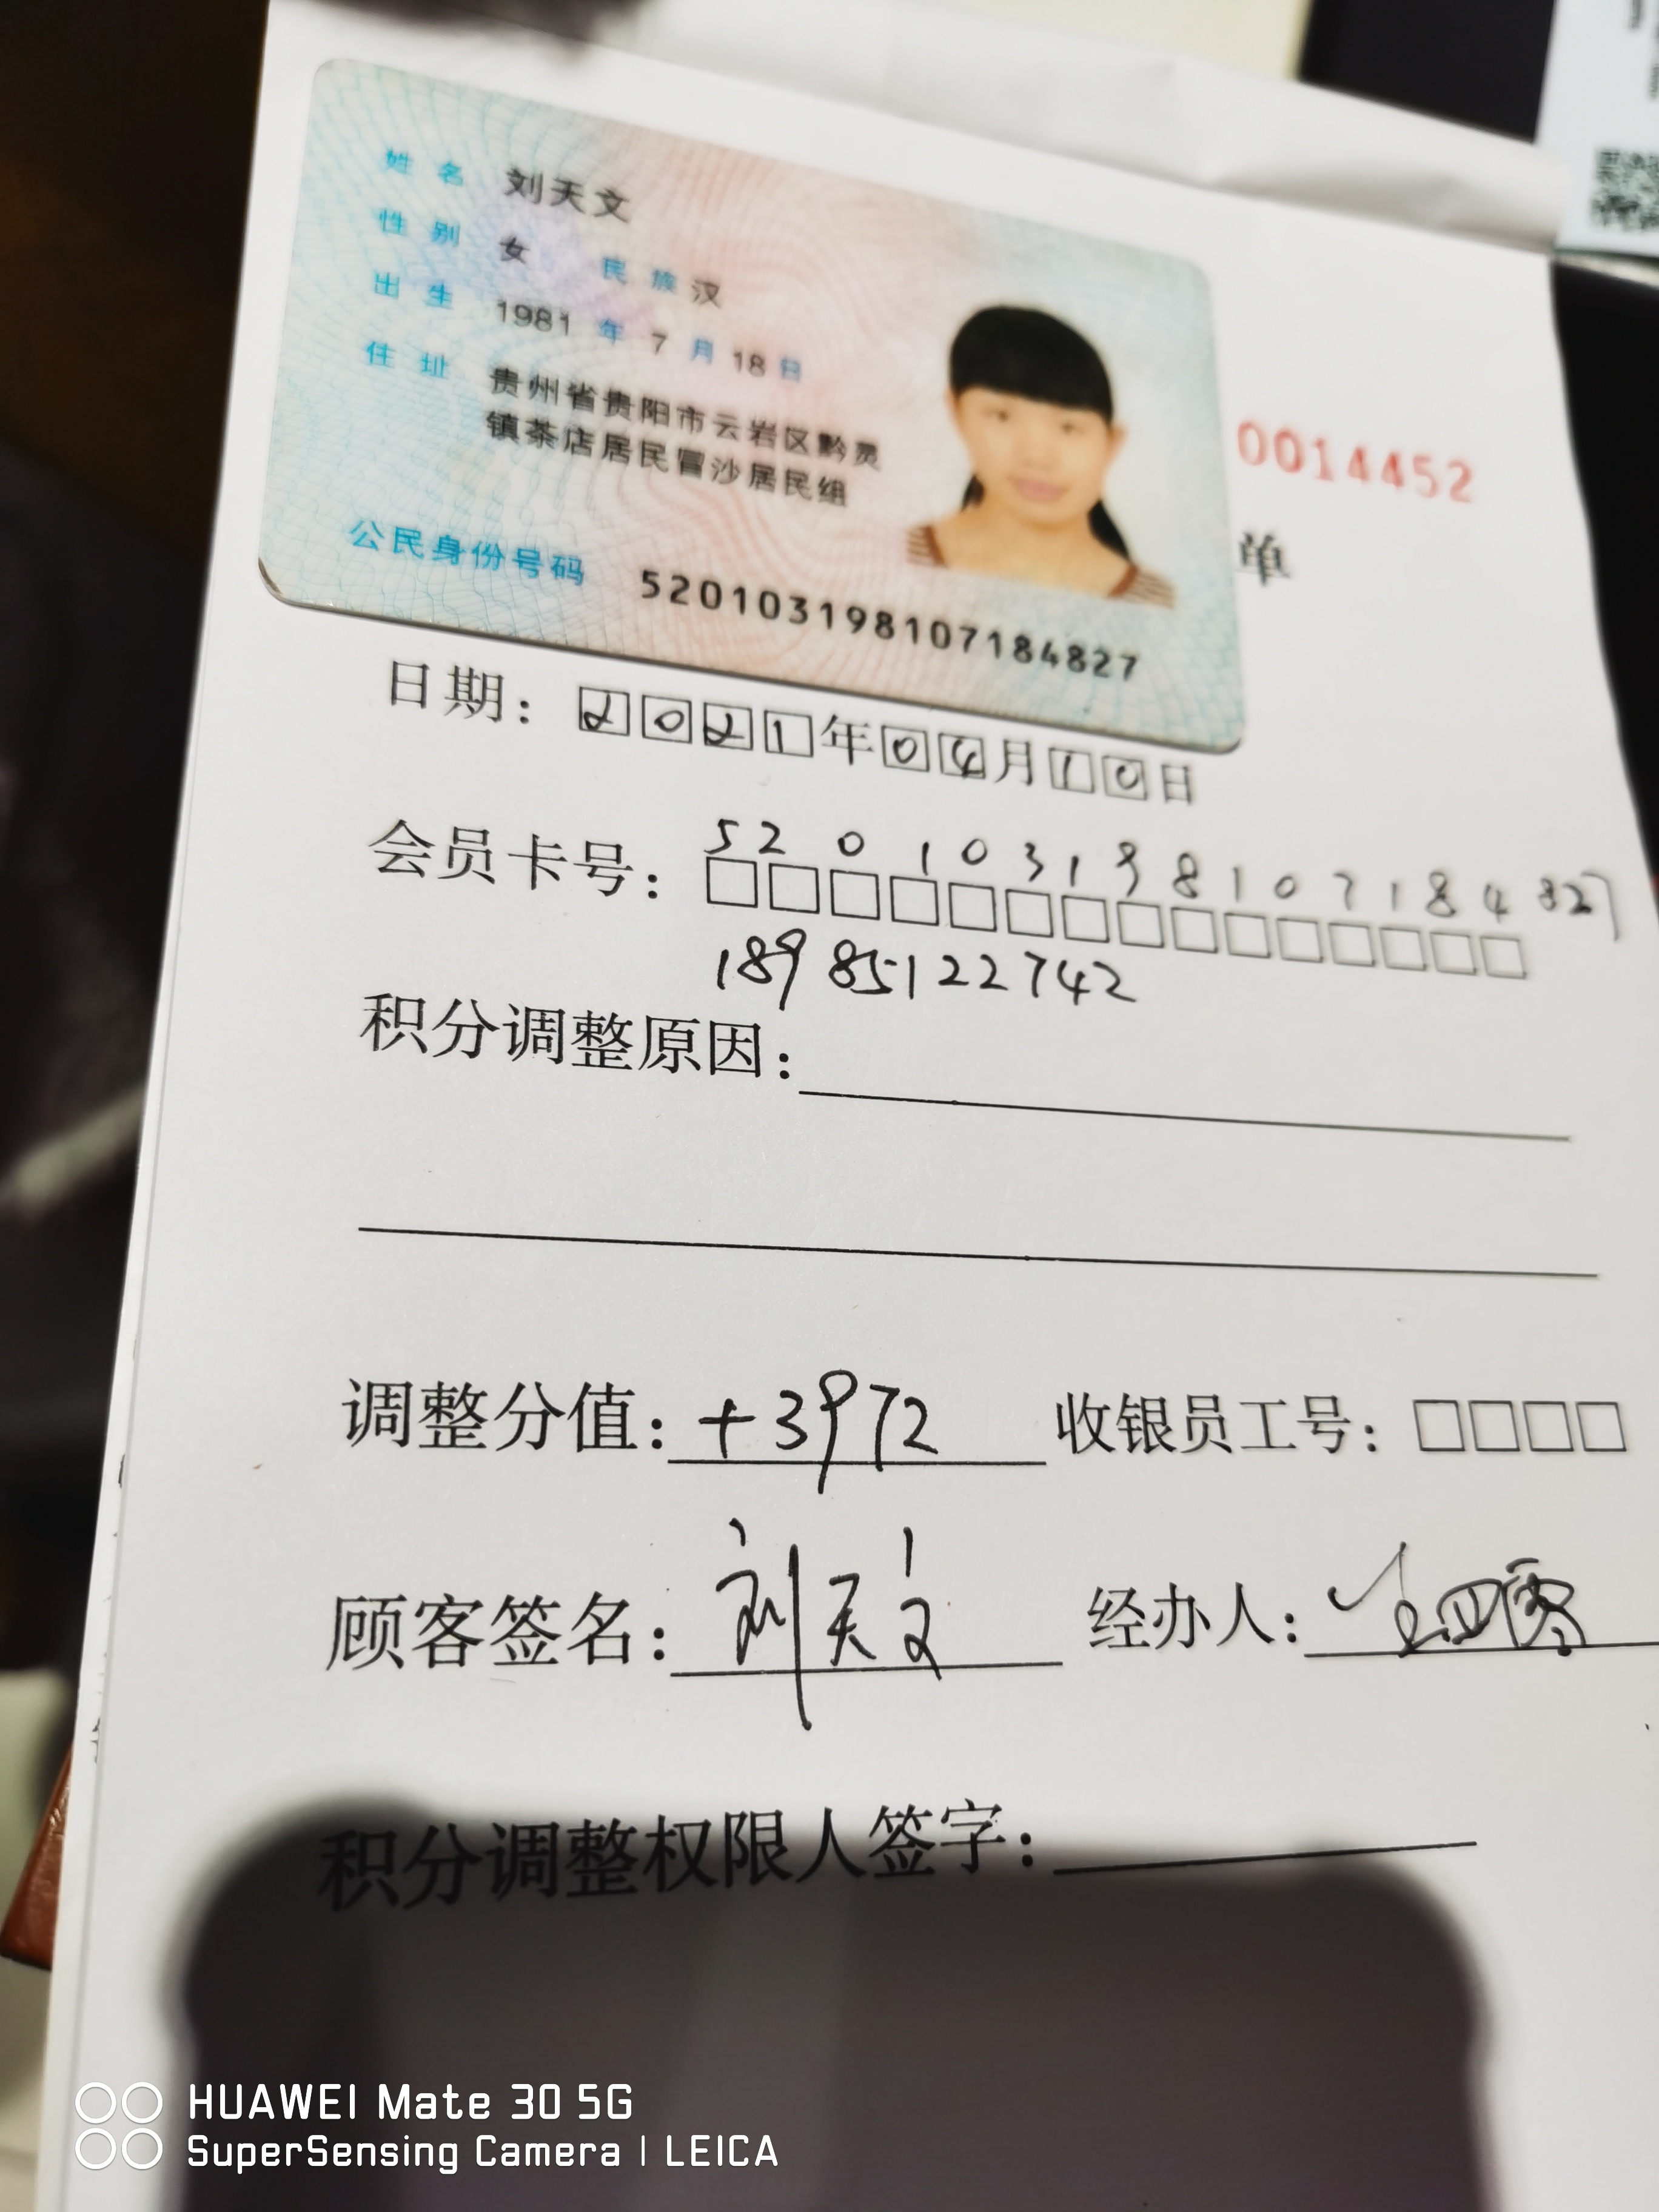 姓名 刘天文
性别 女 民族 汉
出生 1981 年 7 月 18 日
住址 贵州省贵阳市云岩区黔灵
镇茶店居民冒沙居民组
公民身份号码 520103198107184827
0014452
单
日期：2021年04月10日
会员卡号：520103198107184827
18985122742
积分调整原因：
调整分值：+3972 收银员工号：
顾客签名：刘天文 经办人：
积分调整权限人签字：
HUAWEI Mate 30 5G
SuperSensing Camera | LEICA